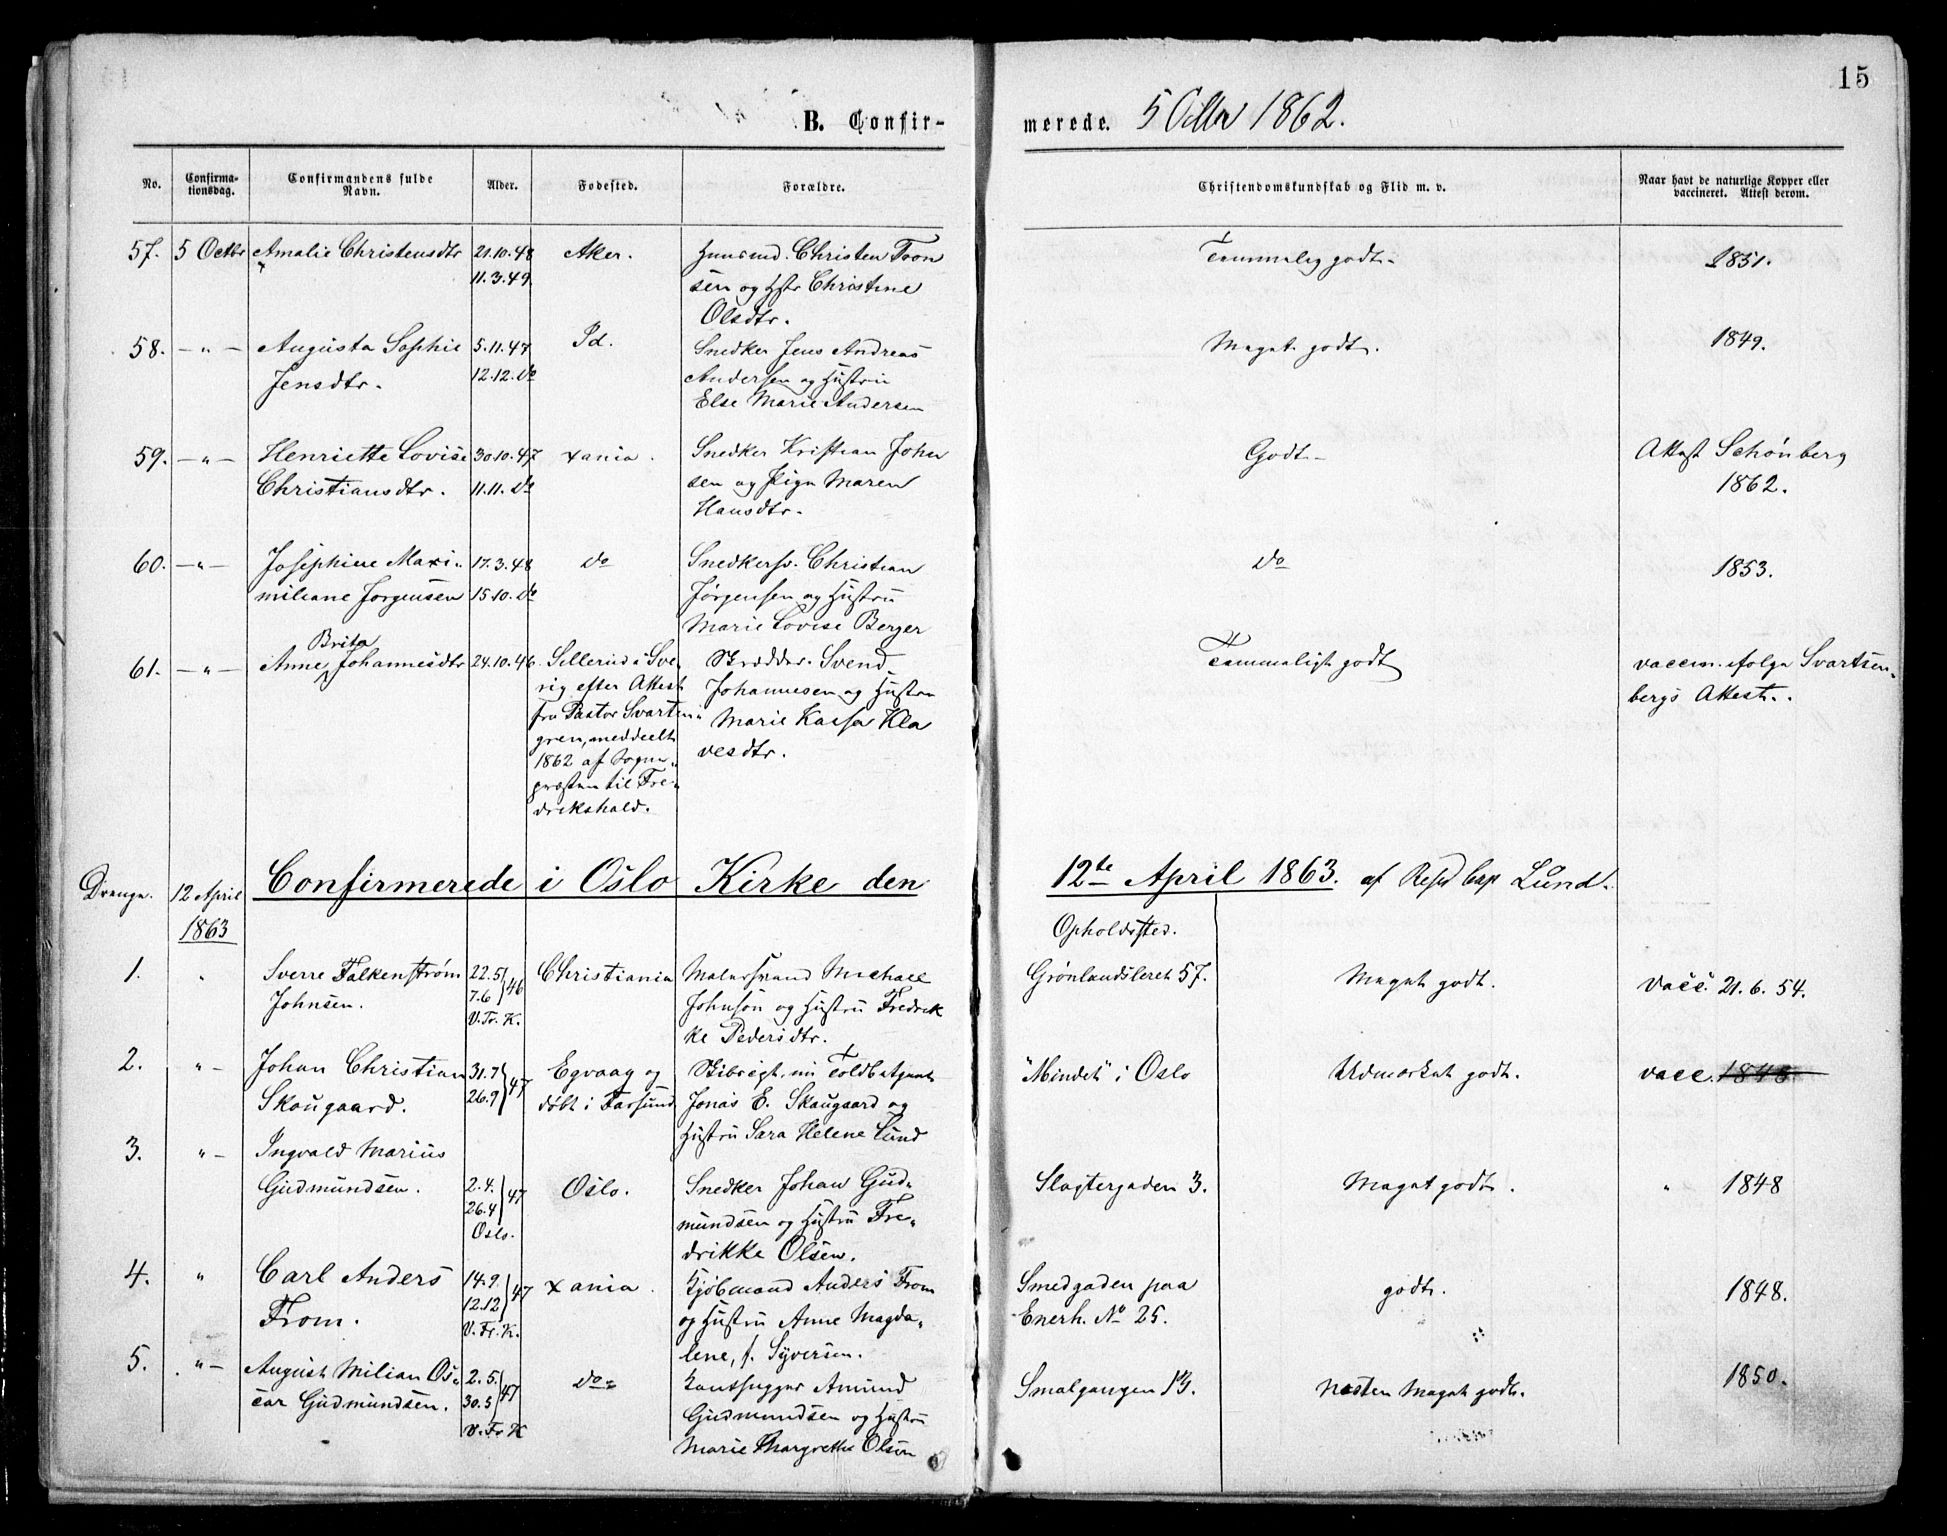 15
B. Confir-
merede. 5 Octbr 1862.
No.
Confirma-
tionsdag.
Confirmandens fulde
Navn.
Alder.
Fødested.
Forældre.
Christendomskundskab og Flid m. v.
Naar havt de naturlige Kopper eller
vaccineret. Attest derom.
57. 5 Octbr Amalie Christensdtr 21.10.48 Aker. Huusmd. Christen Tron Temmelig godt. 1851.
11.3.49 sen og Hstr Christine
Olsdtr.
58. —"— Augusta Sophie 5.11.47 Id. Snedker Jens Andreas Meget godt. 1849.
Jensdtr. 12.12. do Andersen og Hustru
Else Marie Andersen
59. —"— Henriette Lovise 30.10.47 xania. Snedker Kristian Johan Godt Attest Schønberg
Christiansdtr. 11.11. do sen og Pige Maren 1862.
Hansdtr.
60. —"— Josephine Maxi- 17.3.48 do Snedkersv. Christian do 1853.
miliane Jørgensen 15.10. do Jørgensen og Hustru
Marie Lovise Berger
Brita
61. —"— Anne Johannesdtr 24.10.46 Sillerud i Sve- Skrædder Svend Temmeligt godt vaccin. ifølge Svartsen-
rig efter Attest Johannesen og Hustru bergs Attest.
fra Pastor Svarten- Marie Kaisa Kla
gren, meddeelt vesdtr.
1862 af Sogne-
præsten til Fre-
drikshald.
Drenge. 12 April Confirmerede i Oslo Kirke den 12te April 1863. af Resd Cap Lund.
1863
Opholdssted.
1. " Sverre Falkenstrøm 22.5 46 Christiania Matrosmand Michael Grønlandsleret 57. Meget godt. vacc. 21. 6. 54.
Johnsen. 7.6 Johnson og Hustru Fredrik
V. Fr. K. ke Pedersdtr.
2. "— Johan Christian 31.7 47 Egvaag og Skibsrigt, nu Toldbetjent "Mindet" i Oslo Udmærket godt. vacc. 1848.
Skougaard. 26.9 døbt i Farsund Jonas E. Skougaard og
Hustru Sara Helene Lund
3. "— Ingvald Marius
Gudmundsen. 2.4. 47 Oslo. Snedker Johan Gud- Slagtergaden 3. Meget godt. " 1848
26.4 mundsen og Hustru Fre-
Oslo. drikke Olsen.
4. " Carl Anders 14.9. 47 xania. Kjøbmand Anders From Smedgaden paa godt. 1848.
From. 12.12 og Hustru Anne Magda- Enerh. No 25.
V. Fr. K. lene, f. Syversen.
5. "— August Milian Os- 2.5. 47 do Kanthugger Amund Smalgangen 13. næsten Meget godt. 1850.
car Gudmundsen. 30.5 Gudmundsen og Hustru
V. Fr. K Marie Margrethe Olsen